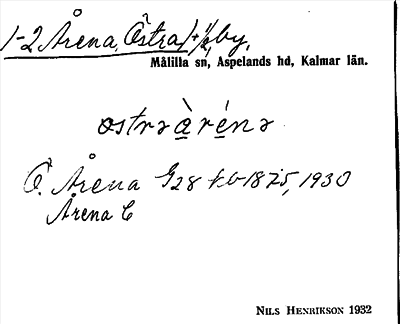 1-2 Årena, Östra, by,
Målilla sn, Aspelands hd, Kalmar län.
ostrə à̱ ré̱nə
Ö. Årena G28 1875, 1930
Årena C
NILS HENRIKSON 1932